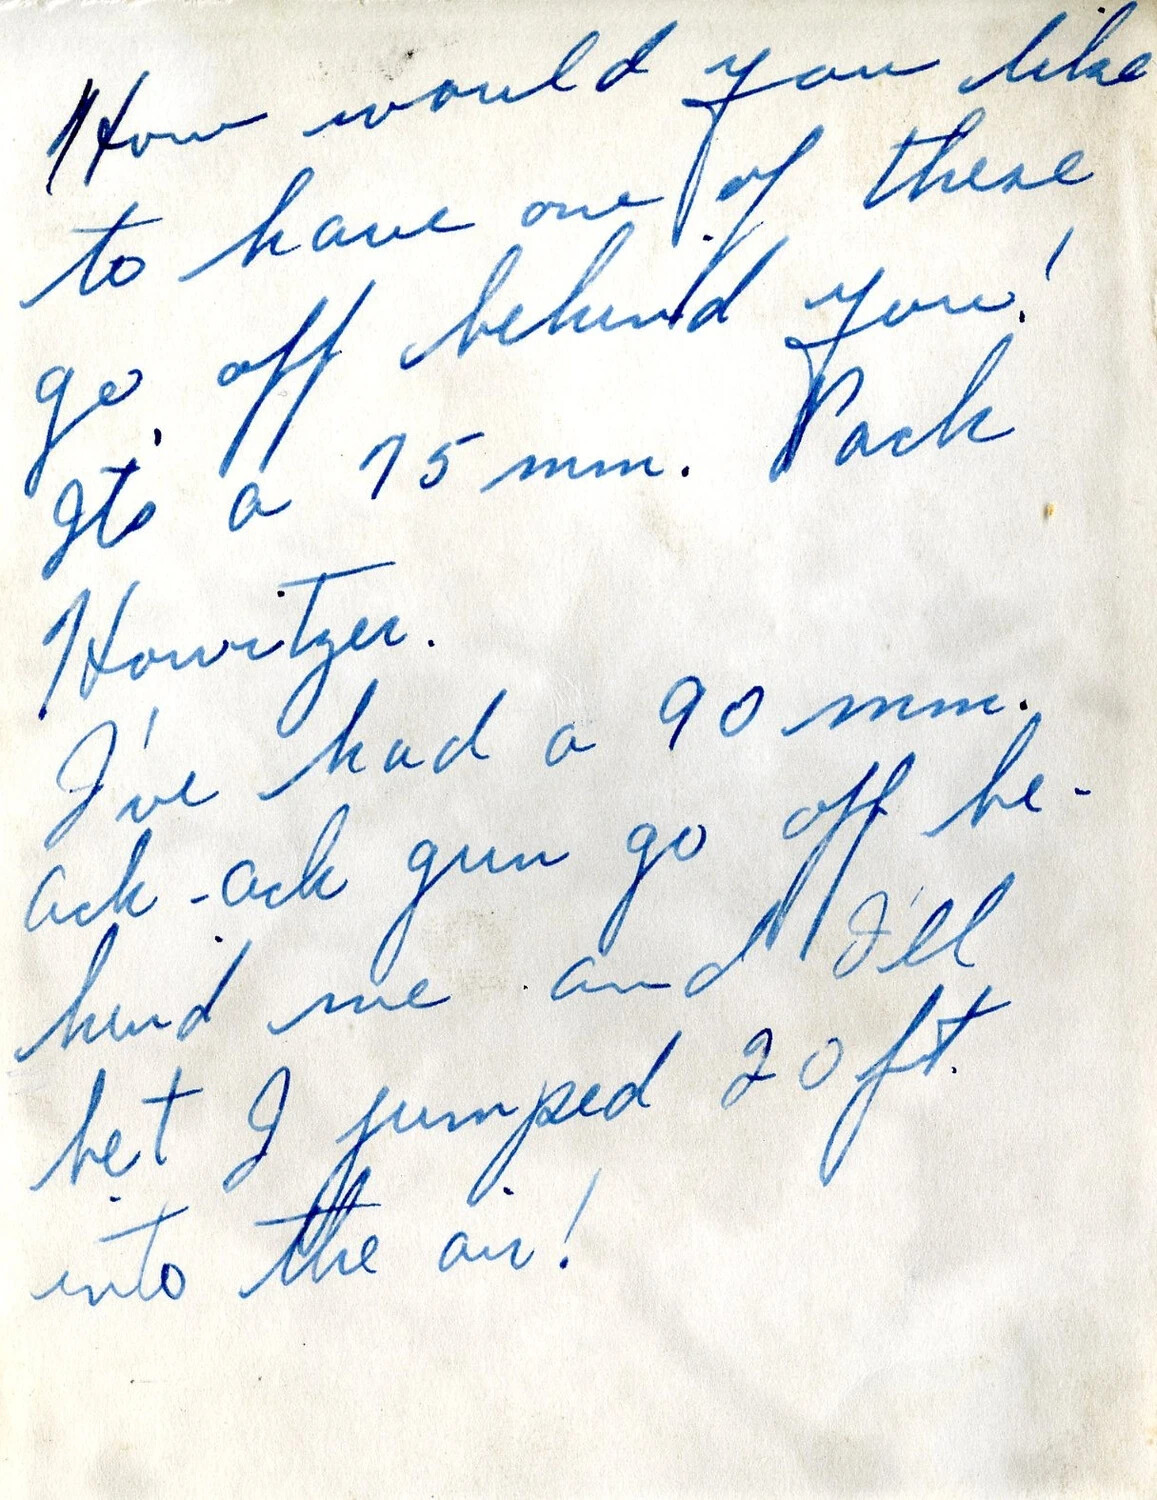 How would you like
to have one of these
go off behind you!
Its a 75 mm. Pack
Howitzer.
I've had a 90 mm.
ack-ack gun go off be-
hind me and I'll
bet I jumped 20 ft.
into the air!